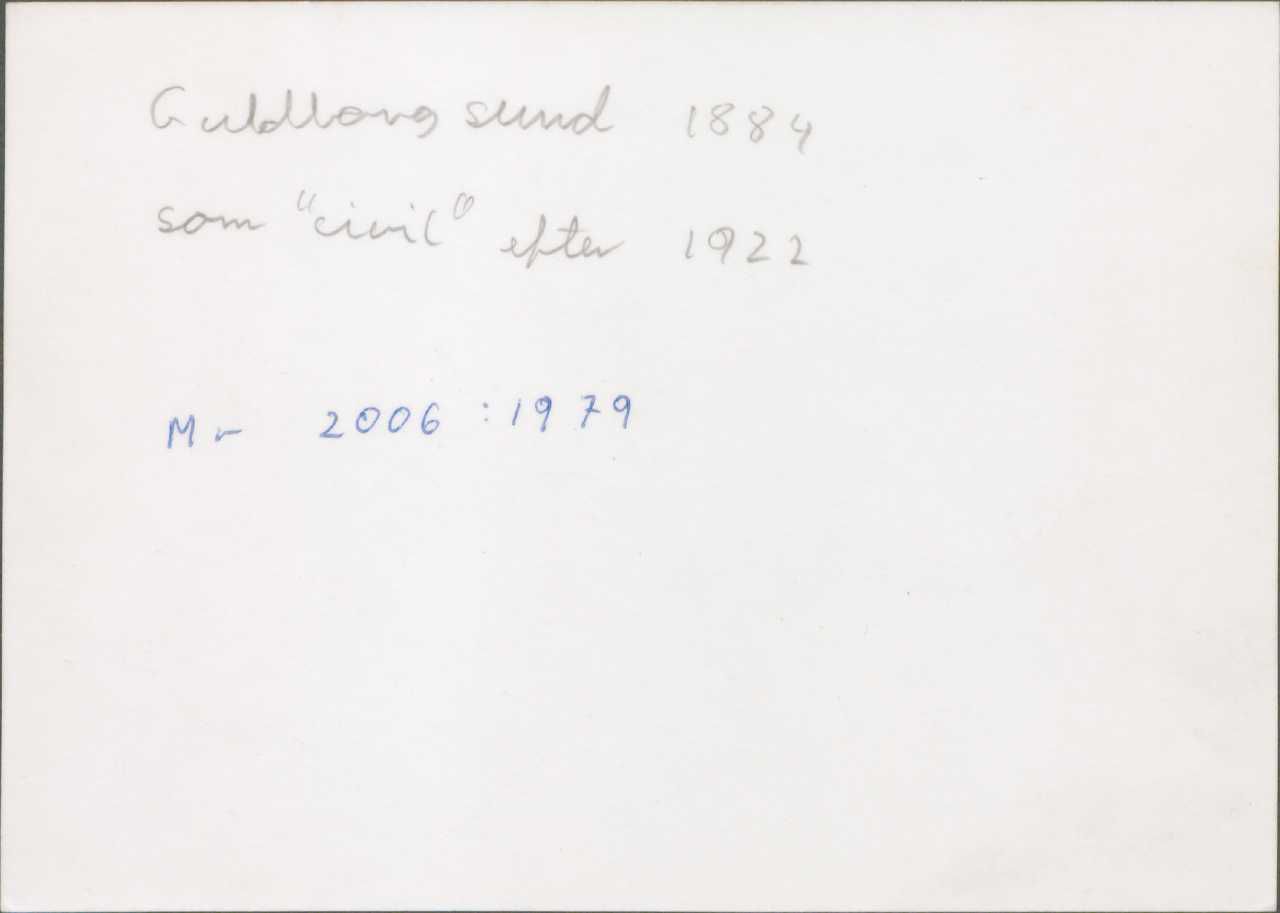 Guldborgsund 1884
som "civil" efter 1922
Mr 2006:1979